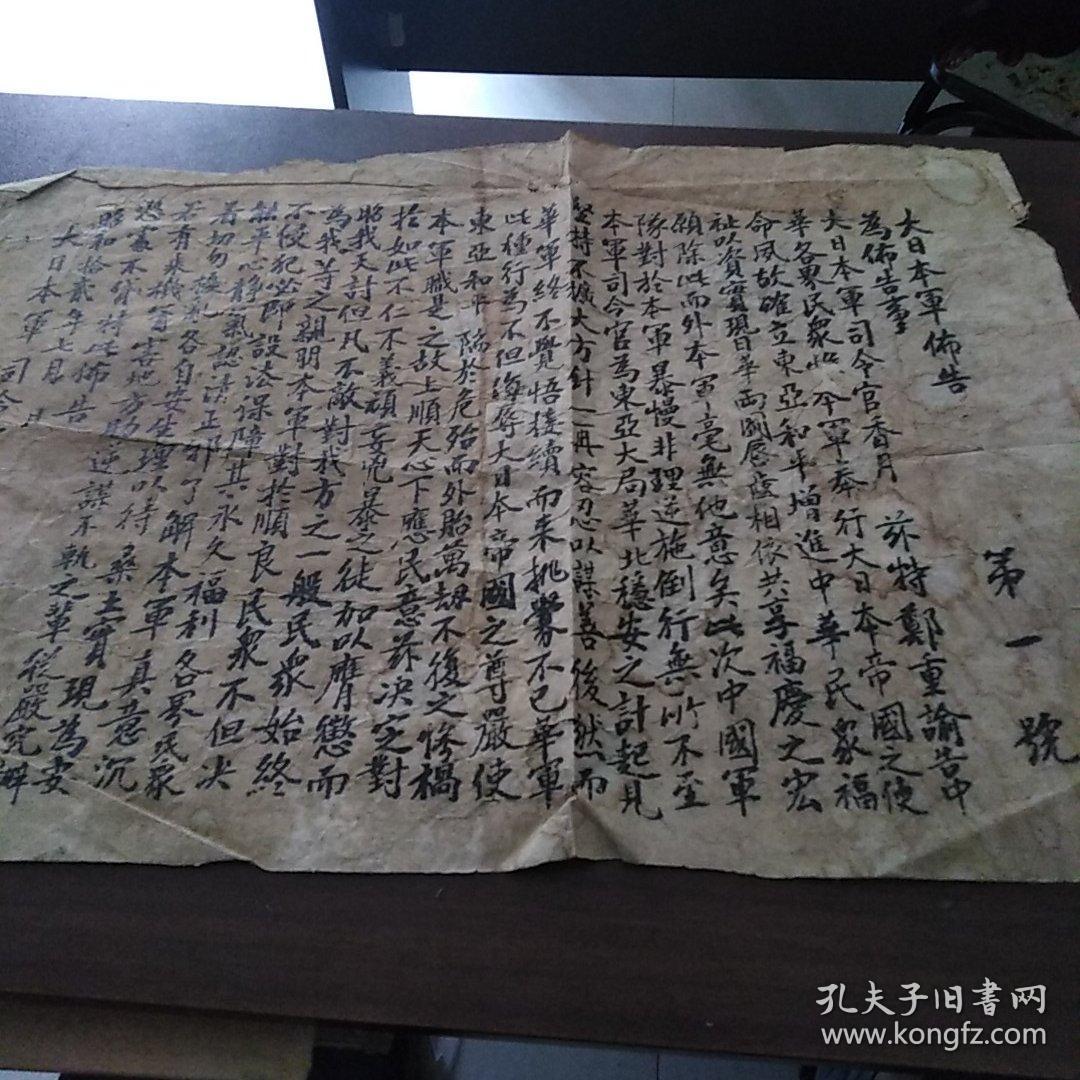 第一號
大日本軍佈告
為佈告事
大日本軍司令官香月 茲特鄭重諭告中
華各界民衆 本軍奉行大日本帝國之使
命夙故確立東亞和平增進中華民衆福
祉以資實現日華兩國唇 相 共享福慶之宏
願除此而外本軍毫無他意矣此次中國軍
隊對於本軍暴慢非理逆施倒行無所不至
本軍司令官為東亞大局華北穩安之計起見
堅持不擴大方針一再容忍以謀善後然而
華軍終不覺悟 續而来挑釁不已華軍
此種行為不但侮辱大日本帝國之尊嚴使
東亞和平陥於危殆而外胎萬劫不復之惨禍
本軍職是之故上順天心下應民意茲决定對
於如此不仁不義頑妄 暴之徒加以膺懲而
昭我天討但凡不敵對我方之一般民衆始終
為我等之親朋本軍對於順良民衆不但决
不侵犯必即設法保障其永久福利各界民衆
平心静氣認清正邪了解本軍真意沉
着切勿 各自安生理以待 土實現為要
若有乘機 害地方 逆謀不軌之輩從嚴究辦
不貸特此佈告
昭和拾貳年七月
大日本軍司令
孔夫子旧書网
www.kongfz.com